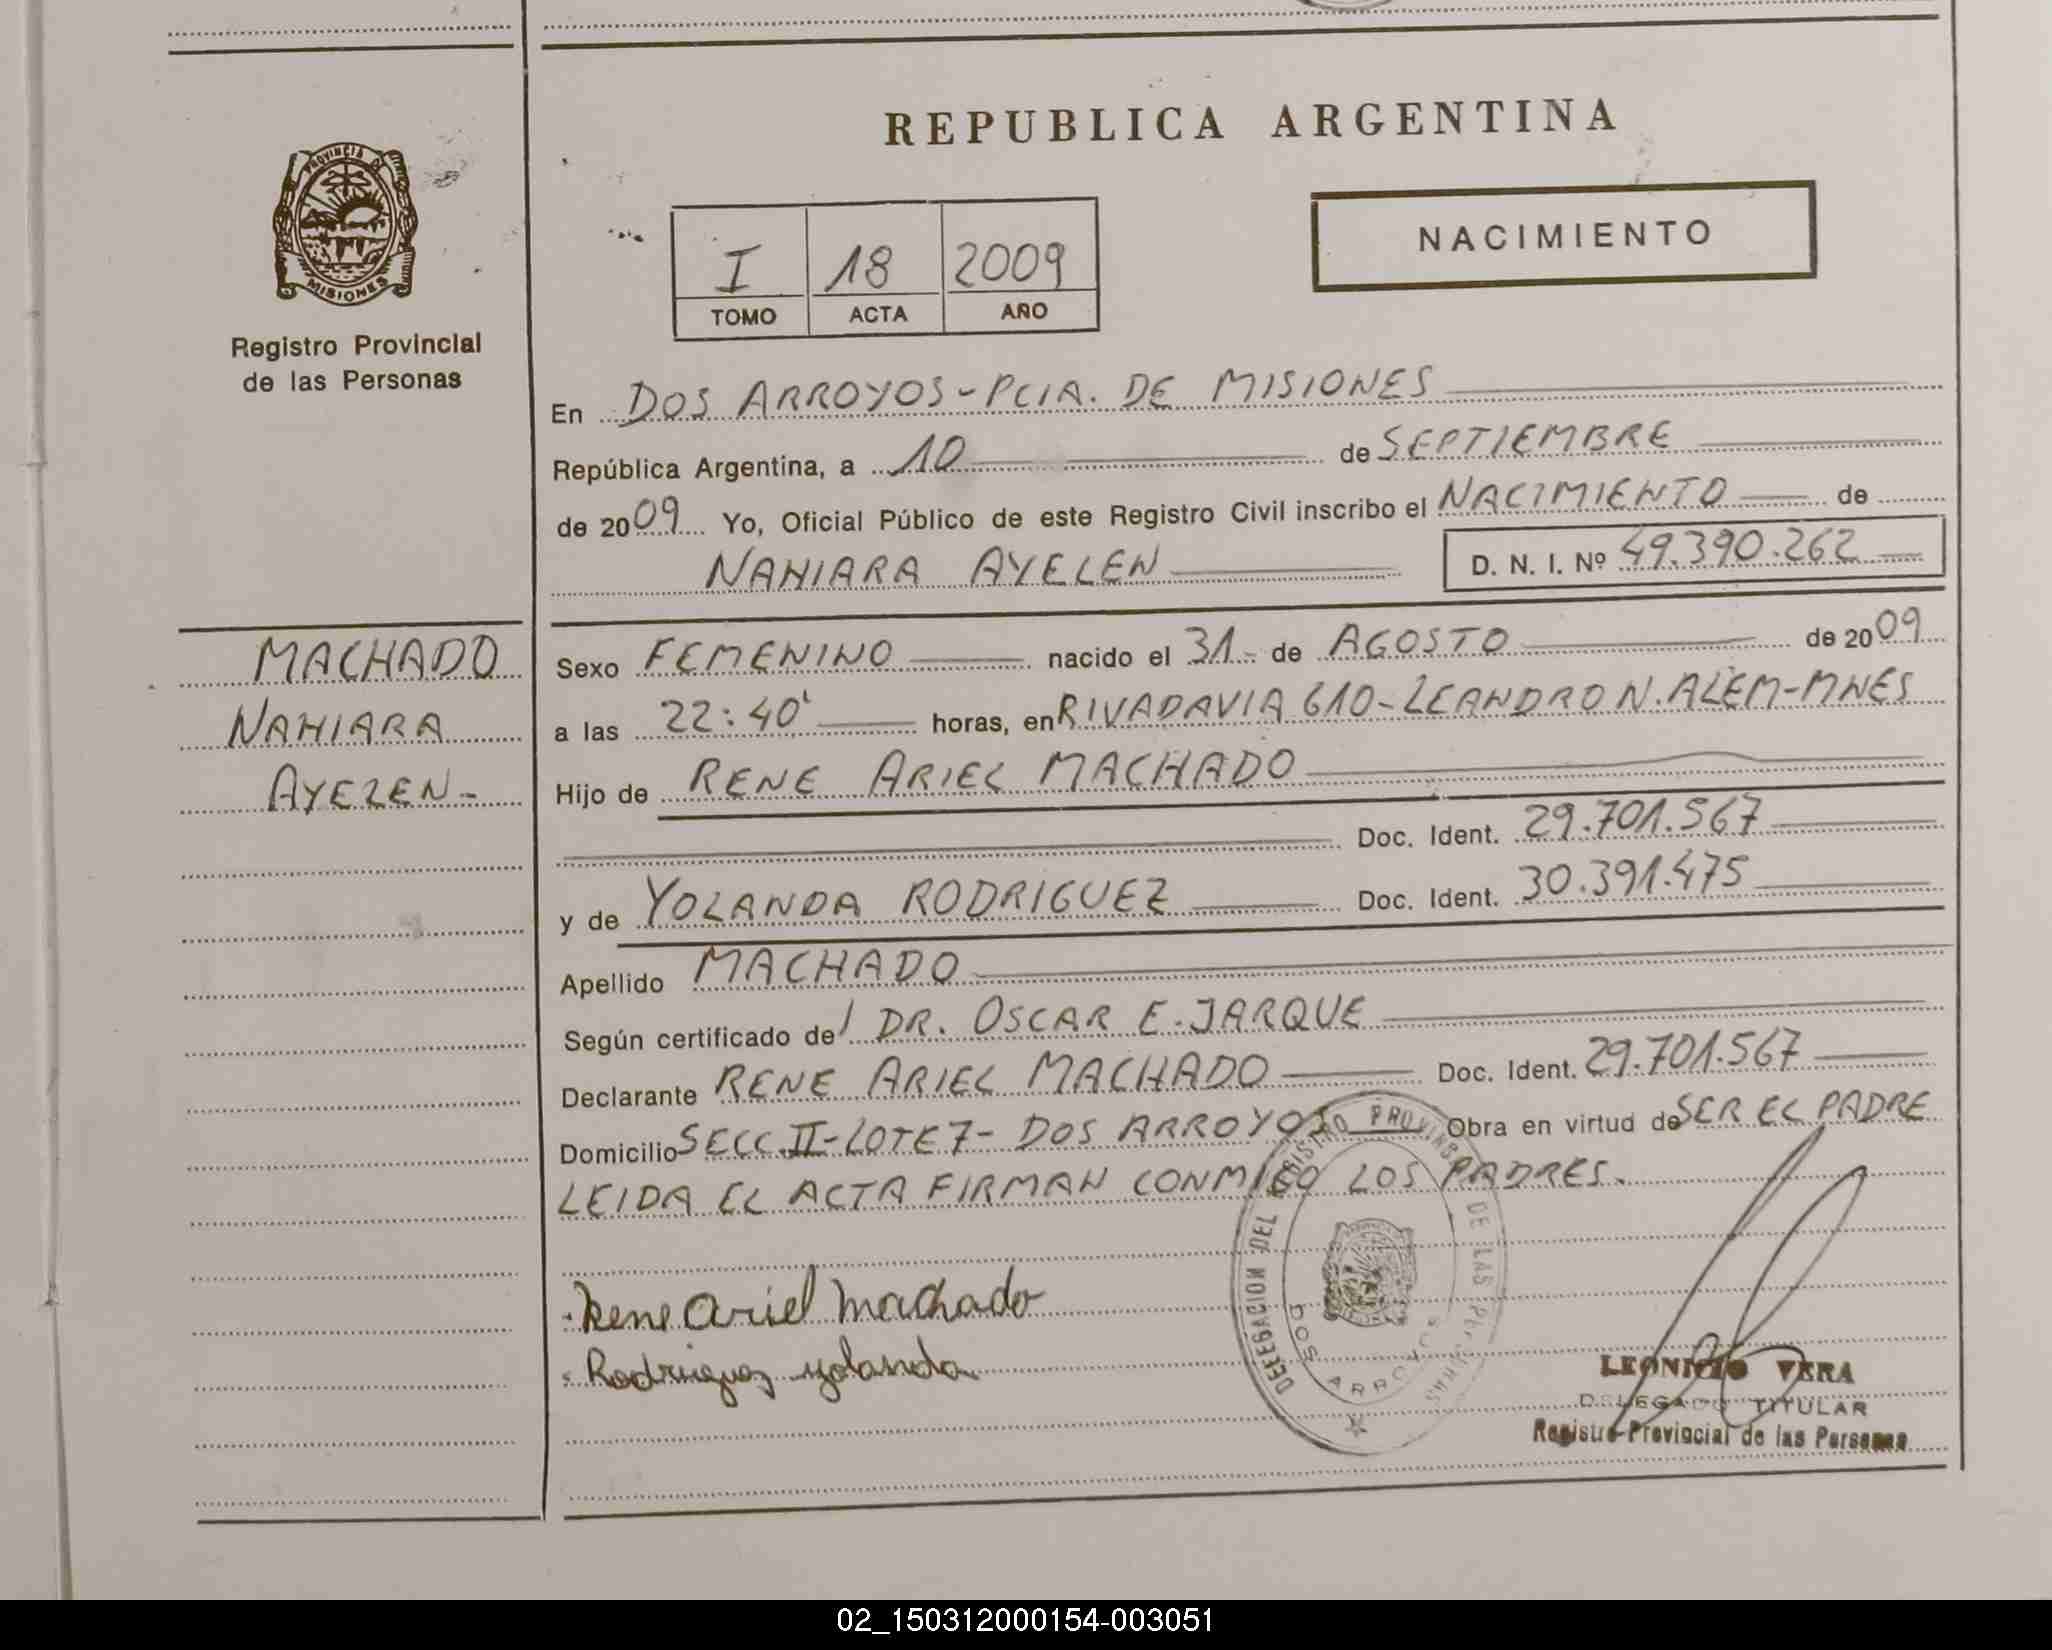 REPUBLICA ARGENTINA
PROVINCIA DE
MISIONES
Registro Provincial
de las Personas
NACIMIENTO
I 18 2009
TOMO ACTA AÑO
En DOS ARROYOS-PCIA. DE MISIONES
República Argentina, a 10 de SEPTIEMBRE
de 2009 Yo, Oficial Público de este Registro Civil inscribo el NACIMIENTO de
NAHIARA AYELEN D. N. I. Nº 49.390.262
MACHADO
NAHIARA
AYELEN-
Sexo FEMENINO nacido el 31- de AGOSTO de 2009
a las 22:40' horas, en RIVADAVIA 610-LEANDRO N. ALEM-MNES
Hijo de RENE ARIEL MACHADO
Doc. Ident. 29.701.567
y de YOLANDA RODRIGUEZ Doc. Ident. 30.391.475
Apellido MACHADO
Según certificado de DR. OSCAR E. JARQUE
Declarante RENE ARIEL MACHADO Doc. Ident. 29.701.567
Domicilio SECC. II-LOTE 7- DOS ARROYOS Obra en virtud de SER EL PADRE
LEIDA EL ACTA FIRMAN CONMIGO LOS PADRES.
Rene Ariel Machado
Rodriguez yolanda
DELEGACION DEL REGISTRO PROVINCIAL DE LAS PERSONAS
DOS ARROYOS
LEONICIO VERA
DELEGADO TITULAR
Registro Provincial de las Personas
02_150312000154-003051